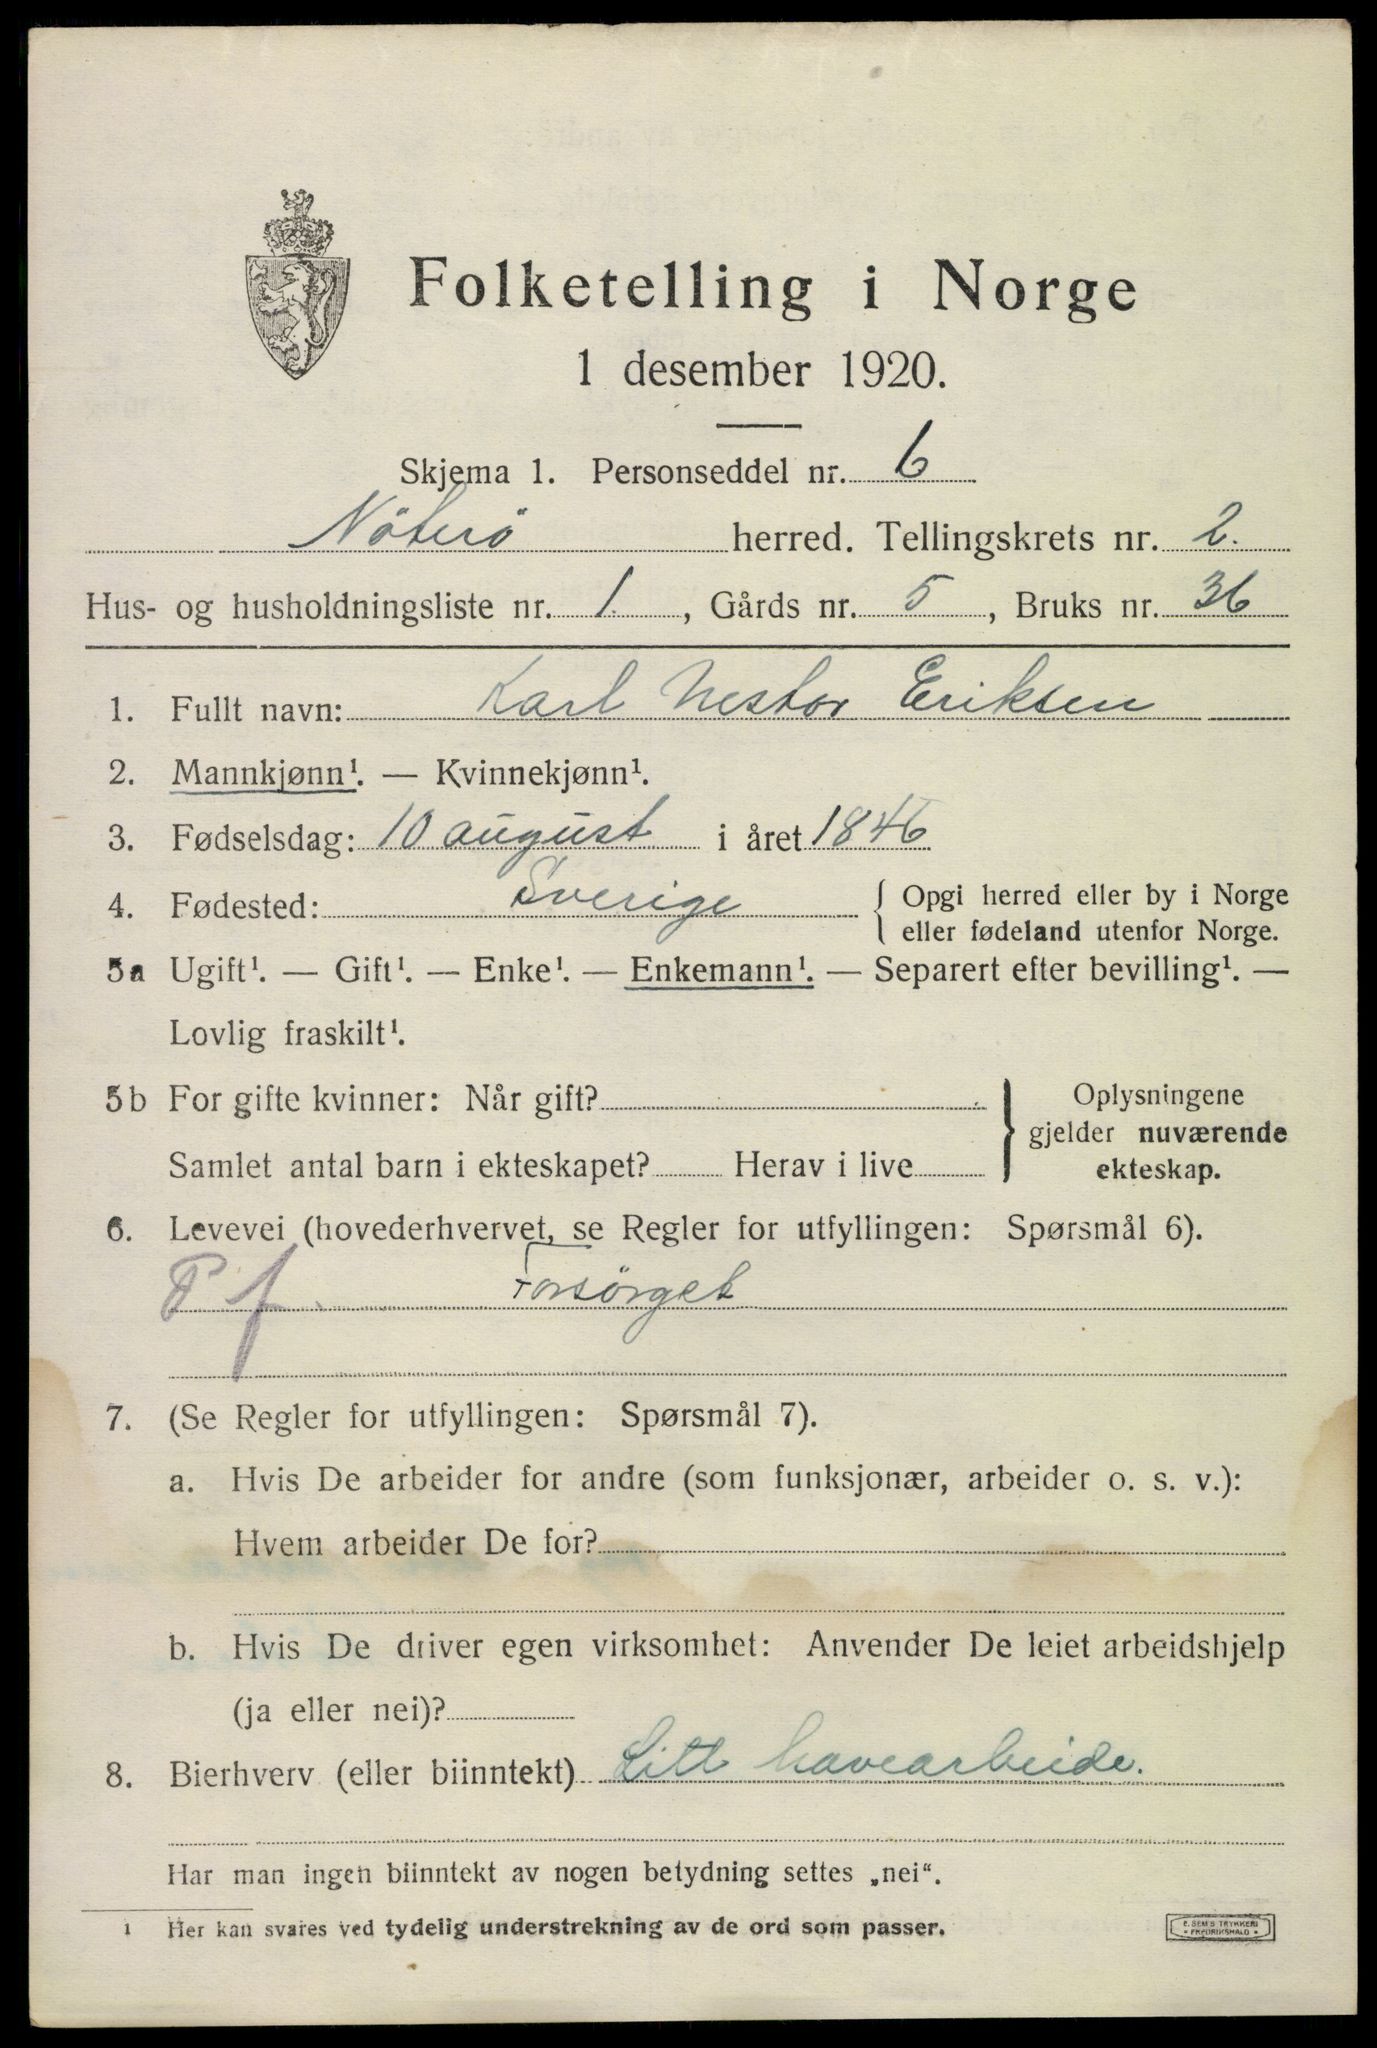 Folketelling i Norge
1 desember 1920.
Skjema 1. Personseddel nr. 6
Nöterö herred. Tellingskrets nr. 2.
Hus- og husholdningsliste nr. 1. , Gårds nr. 5 , Bruks nr. 36
1. Fullt navn: Karl Nestor Eriksen
2. Mannkjønn¹. — Kvinnekjønn¹.
3. Fødselsdag: 10 august i året 1846
4. Fødested: Sverige { Opgi herred eller by i Norge
eller fødeland utenfor Norge.
5a Ugift¹. — Gift¹. — Enke¹. — Enkemann¹. — Separert efter bevilling¹. —
Lovlig fraskilt¹.
5b For gifte kvinner: Når gift? } Oplysningene
gjelder nuværende
Samlet antal barn i ekteskapet? Herav i live
ekteskap.
6. Levevei (hovederhvervet, se Regler for utfyllingen: Spørsmål 6).
P f. Forsörget
7. (Se Regler for utfyllingen: Spørsmål 7).
a. Hvis De arbeider for andre (som funksjonær, arbeider o. s. v.):
Hvem arbeider De for?
b. Hvis De driver egen virksomhet: Anvender De leiet arbeidshjelp
(ja eller nei)?
8. Bierhverv (eller biinntekt) Litt havearbeide.
Har man ingen biinntekt av nogen betydning settes „nei“.
1 Her kan svares ved tydelig understrekning av de ord som passer.
E. SEM'S TRYKKERI
• FREDRIKSHALD •